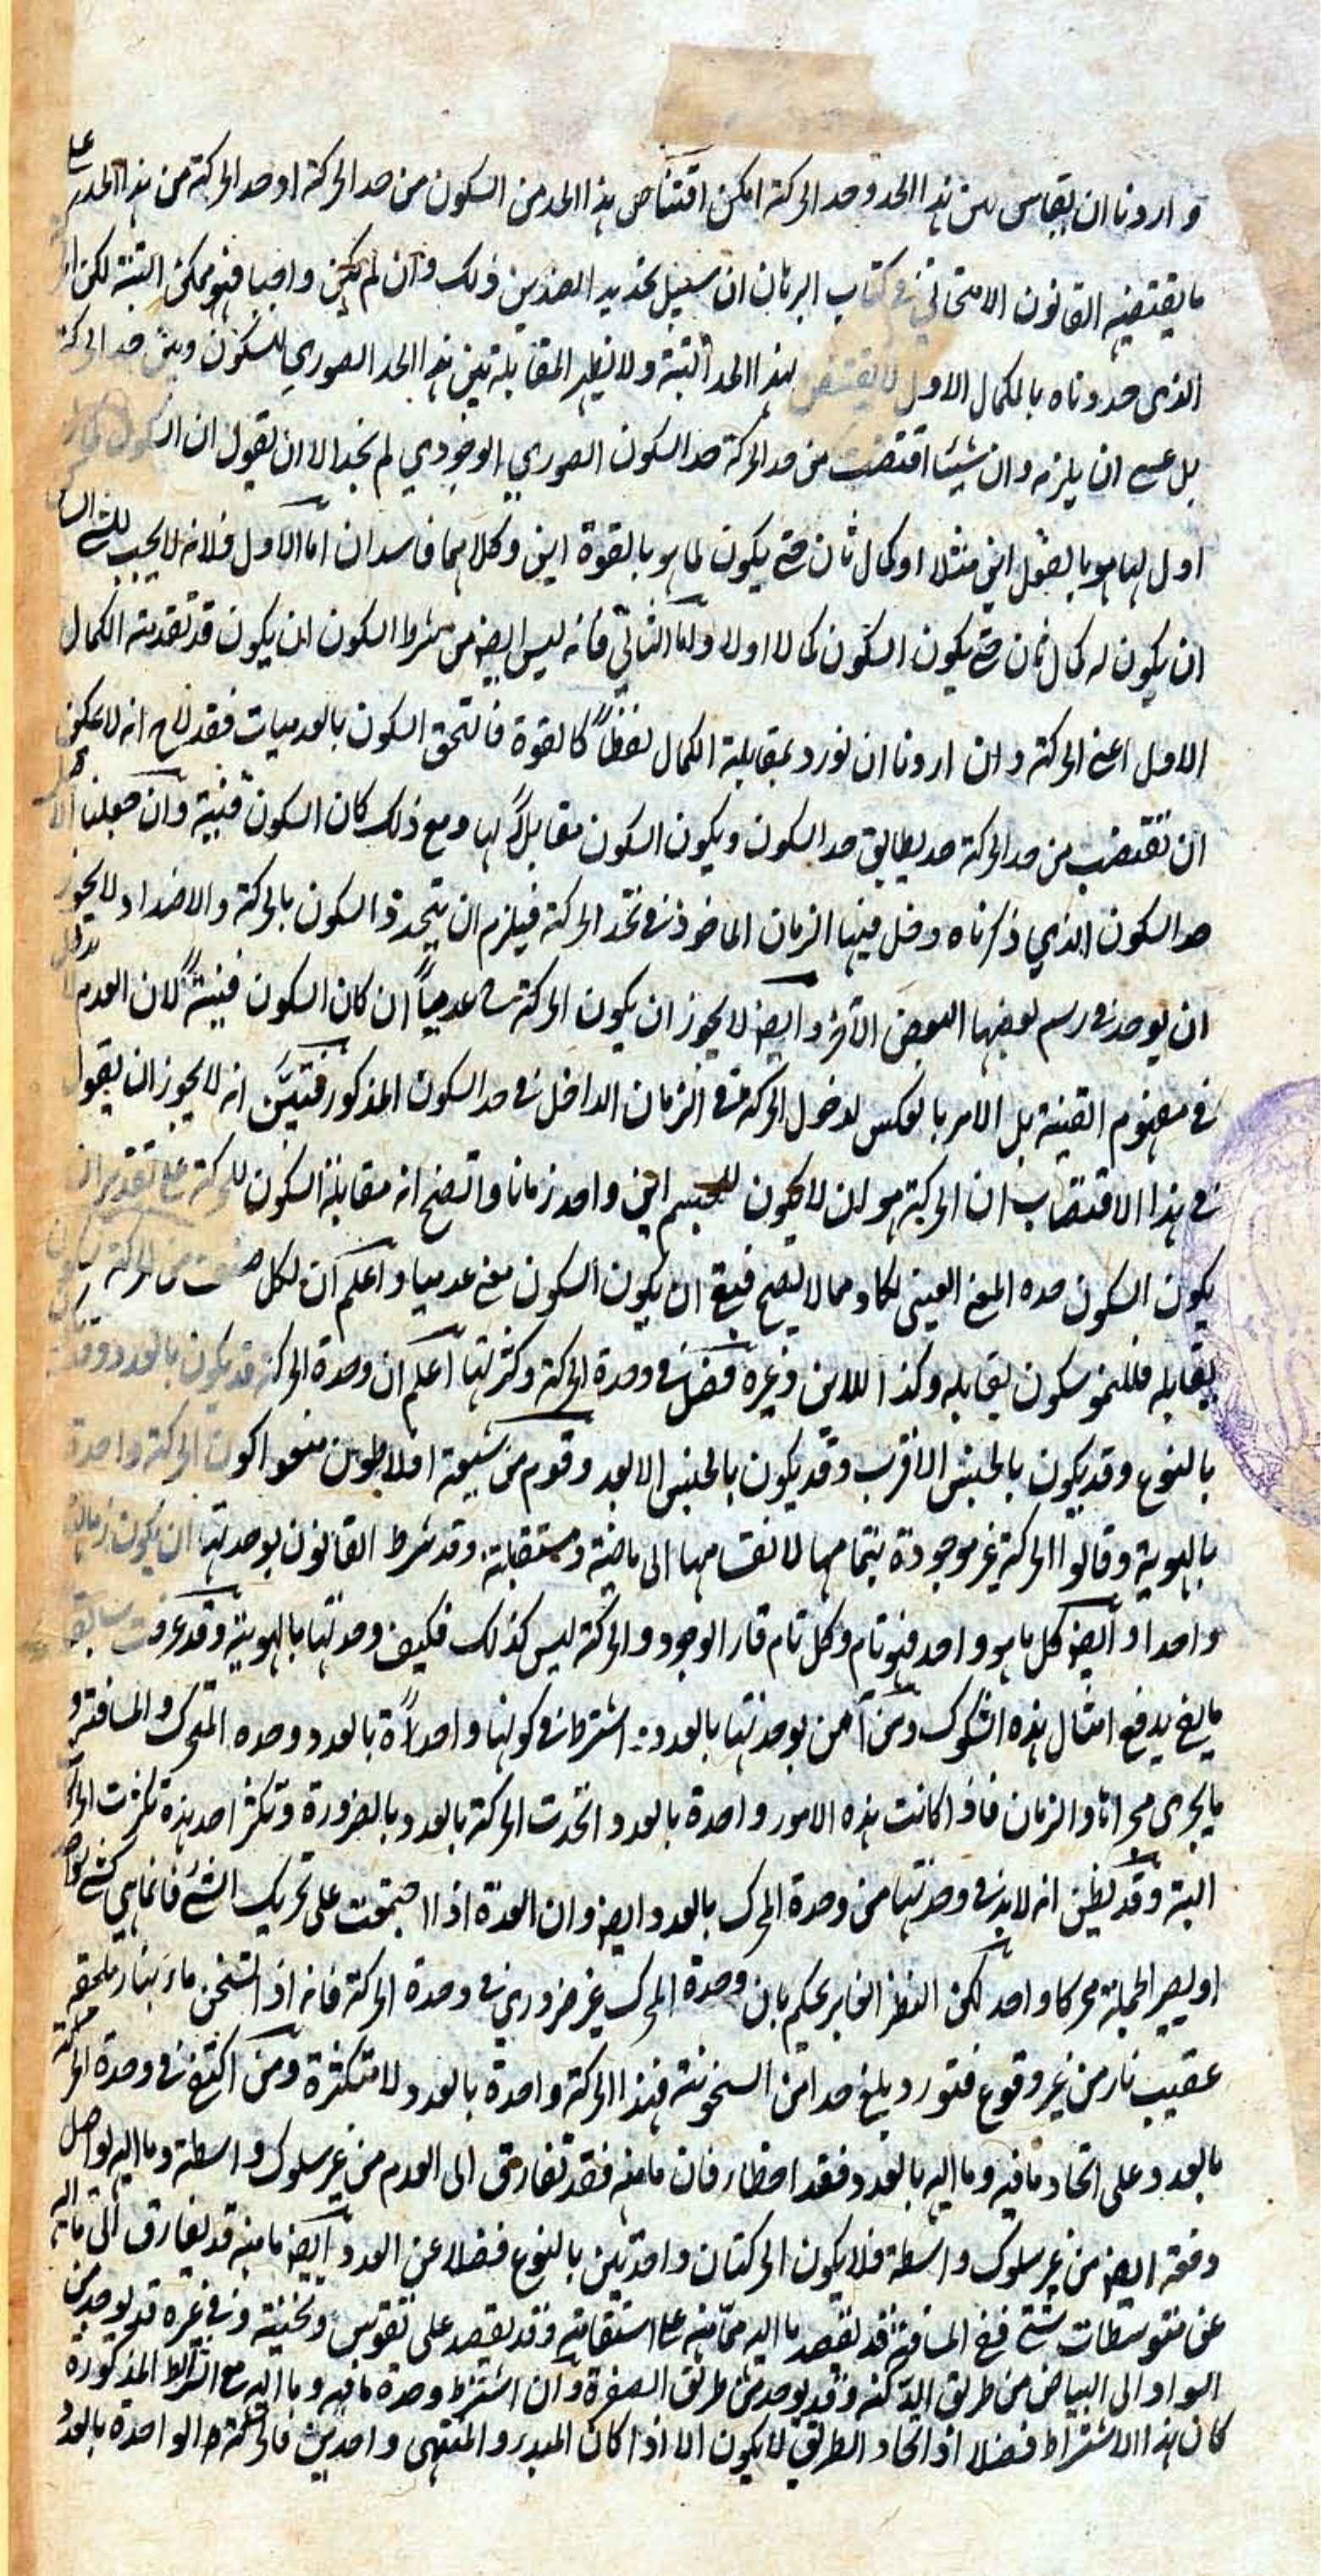 و اردنا ان يقايس بين هذا الحد وحد الحركة امكن اقتناص هذا الحد من السكون من حد الحركة او حد الحركة من هذا الحد على
ما يقتضيه القانون الامتحاني في كتاب البرهان ان سبيل تحديد الضدين ذلك وان لم يكن واجبا فهو ممكن البتة لكن
الذى حددناه بالكمال الاول لا يقتنص لهذا الحد البتة ولا نظير المقابلة بين هذا الحد الصوري للسكون وبين حد الحركة
بل عسى ان يلزمه وان شئنا اقتضب من حد الحركة حد السكون الصوري الوجودي لم نجد الا ان نقول ان السكون كمال
اول لما هو بالفعل اين مثلا او كمال ثان حتى يكون لما هو بالقوة اين وكلاهما فاسدان اما الاول فلانه لا يجب للشئ الساكن
ان يكون له كمال ثان حتى يكون السكون كمالا اولا واما الثاني فانه ليس ايضا من شرط السكون ان يكون قد تقدمته الكمال
الاول اعنى الحركة وان اردنا ان نورد بمقابلة الكمال لفظا كالقوة فالتحق السكون بالعدميات فقد لاح انه لا يمكن
ان نقتضب من حد الحركة حد يطابق حد السكون ويكون السكون مقابلا لها ومع ذلك كان السكون قنية وان جعلنا الاصل
حد السكون الذي ذكرناه دخل فيها الزمان الماخوذ في تحد الحركة فيلزم ان يتحدد السكون بالحركة والاضداد لا يجوز
ان يوخذ في رسم بعضها البعض الآخر وايضا لا يجوز ان يكون الحركة عدميا ان كان السكون قنية لان العدم لا يدخل
في مفهوم القنية بل الامر بالعكس لدخول الحركة في الزمان الداخل في حد السكون المذكور فتبين انه لا يجوز ان يقول
في هذا الاقتضاب ان الحركة هو ان لا يكون للجسم اين واحد زمانا واتضح انه مقابلة السكون للحركة على تقدير ان
يكون السكون حده المعنى القنيى لكا دمما لا يصح فبقى ان يكون السكون معنى عدميا واعلم ان لكل صنف من الحركة سكون
يقابله فللنمو سكون يقابله وكذا للاين وغيره فصل في وحدة الحركة وكثرتها اعلم ان وحدة الحركة قد يكون بالعدد وقد
بالنوع وقد يكون بالجنس الاقرب وقد يكون بالجنس الابعد وقوم من شيعة افلاطون منعوا كون الحركة واحدة
بالهوية وقالوا الحركة غير موجودة بتمامها لانقسامها الى ماضية ومستقبلة وقد شرط القانون بوحدتها ان يكون زمانها
واحدا وايضا كل ما هو واحد فهو تام وكل تام قار الوجود والحركة ليس كذلك فكيف وحدتها بالهوية وقد عرفت سابقا
ما يفى بدفع امثال هذه الشكوك ومن آمن بوحدتها بالعدد اشترط في كونها واحدة بالعدد وحده المتحرك والمسافة و
ما يجرى مجراها والزمان فاذا كانت هذه الامور واحدة بالعدد اتحدت الحركة بالعدد بالضرورة وتكثر احد هذه تكثرت الحركة
البتة وقد يظن انه لا بد في وحدتها من وحدة المحرك بالعدد ايضا وان العدة اذا اجتمعت على تحريك الشئ فانما هى كشئ واحد
او يصير الجملة محركا واحد لكن النظر الغاير يحكم بان وحدة المحرك غير ضروري في وحدة الحركة فانه اذا تسخن ماء بنار ملحقة
عقيب نار من غير وقوع فتور ويبلغ حدا من السخونة فهذا الحركة واحدة بالعدد لا متكثرة ومن اكتفى في وحدة الحركة
بالعدد على اتحاد ما فيه وما اليه بالعدد فقد اخطا فان ما منه فقد تفارق الى العدم من غير سلوك واسطة وما اليه يواصل
دفعة ايضا من غير سلوك واسطة فلا يكون الحركتان واحدتين بالنوع فضلا عن العدد وايضا ما منه قد يفارق الى ما اليه
عن متوسطات شتى ففى المسافة قد يقصد ما اليه مما منه على استقامة وقد يقصد على تقوس وتحنية وفي غيره قد يوجد من
السواد الى البياض من طريق الدكنة وقد يوجد من طريق الصفرة وان اشترط وحدة ما فيه وما اليه مع الشرائط المذكورة
كان هذا الاشتراط فضلا اذ اتحاد الطريق لا يكون الا اذا كان المبدء والمنتهى واحدين فالحركة الواحدة بالعدد